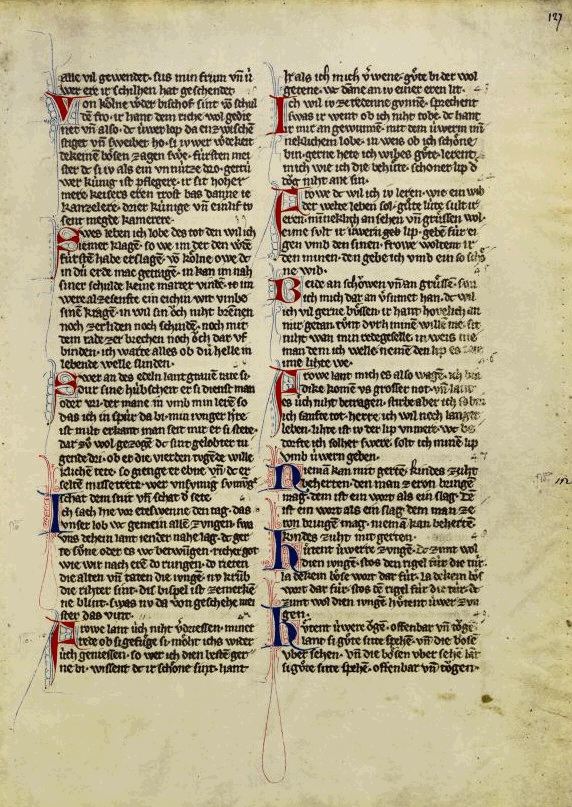 127
alle vil gewendet· sus min frum vñ ů
wer ere ir schilhen hat geschendet·
Von kölne werder bischof sint vō schul
den fro· ir hant dem riche wol gedie
net vñ also· dc ůwer lop da enzwischē
stiget vñ sweibet ho· si iv wer
dekeinē bösen zagen fürsten mei
ster dc si iv als ein vnnútze dro· getrú
wer kúnig is pflegere· ir sit hoher
mere· keisers eren trost bas danne ie
kanzelere· drier kúnige vñ einlif tv
sent megde kamerere·
Swes leben ich lobe des tot den wil ich
iemer klagē· so we im der den wdē
fúrsten habe erslagē võ kölne owe dc
in dú erde mac getragē· in kan im nah
siner schulde keine marter vindē· im
were alze senfte ein eichin wit vmbe
sinē kragē· in wil sin ŏch niht brēnen
noch zerliden noch schindē· noch mit
dem rade zer brechen noch ŏch dar vf
binden· ich warte alles ob dú helle in
lebende welle slinden·
Swer an des edeln lantgrauē rate si·
dur sine húbscheit er si dienst man
oder vri· der mane in vmb min lerē so
das ich in spúr da bi· min iunger h're
ist milt erkant man seit mir er si stete·
dar zů wol gezogē dc sint gelobter tu
gende dri· ob er die vierden tvgēde wille
klichen tete· so gienge er ebne vñ dc er
selten missetrete· wer vnsvmig svmūg
schat dem snit vñ schat d' sete·
Ich sach hie vor eteswenne den tag· das
vnser lob wc gemein allē zvngen· swa
vns dehein lant iender nahe lag· dc ger
te sůne oder es wc betwūgen· richer got
wie wir nach erē do rungen· do rieten
die alten vñ taten die iungē· nv krūb
die rihter sint· dis bispel ist zemerkē
ne blint· swas nv da von geschehe mei
ster das vint·
Frowe lant úch niht v'driessen· miner
rede ob si gefůge si· möht ichs wider
úch geniessen· so wer ich dien besten ger
ne bi· wissent dc ir schöne sint· hant
Ir als ich mich v'wene· gůte bi der wol
getene· wc dāne an iv einer eren lit·
Ich wil iv zeredenne gvnnē· sprechent
swas ir went ob ich niht tobe· dc hant
ir mir an gewunnē· mit dem úwerm mī
neklichem lobe· in weis ob ich schöne
bin· gerne hete ich wibes gůte· lerent
mich wie ich die behůte· schöner lip d
tŏg niht ane sin·
Frowe dc wil ich iv leren· wie ein wib
der welte leben sol· gůte lúte sult ir
eren· mīneklich an sehen vñ grůssen wol·
eime sult ir úwern geb lip· gebē fúr ei
gen vmb den sinen· frowe woltent ir
den minen· den gebe ich vmb ein so schö
ne wib·
Beide an schŏwen vñ an grůssē· swc
ich mich dar an v'sumet han· dc wil
ich vil gerne bůssen· ir hant hovelich an
mir getan· tůnt durh minen wille me· sit
niht wan min redegeselle· in weis nie
man dem ich welle· nemē den lip es tete
ime lihte we·
Frowe lant mich es also wagē· ich bin
dike komē vs grosser not· vñ lant
es úch niht betragen· stirbe aber ich
ich sanfte tot· herre ich wil noch langer
leben· lihte ist iv der lip vnmere· wc be
dorfte ich solher swere· solt ich minē lip
vmb úwern geben·
Niemā kan mit gertē· kindes zuht
beherten· den man z eren bringē
mag· dem ist ein wort als ein slag· dē
ist ein wort als ein slag· den man ze
ren bringē mag· niemā kan behertē
kindes zuht mit gerten·
Hůtent úwerre zvngē· dc zimt wol
dien iungē· stos den rigel fúr die túr·
la dekein böse wort dar fúr· la dekein bös
wort dar fúr· stos dē rigel fúr die túr· dc
zimt wol dien iungē· hůtent úwer zvn
gen·
Hůtent úwere ŏgē· offenbar vñ tŏgē·
lant si gůte sitte spehē· vñ die böse
vber sehen· vñ die bösen vber sehē lāt
si gůte sitte spehē· offenbar vñ tŏgen·